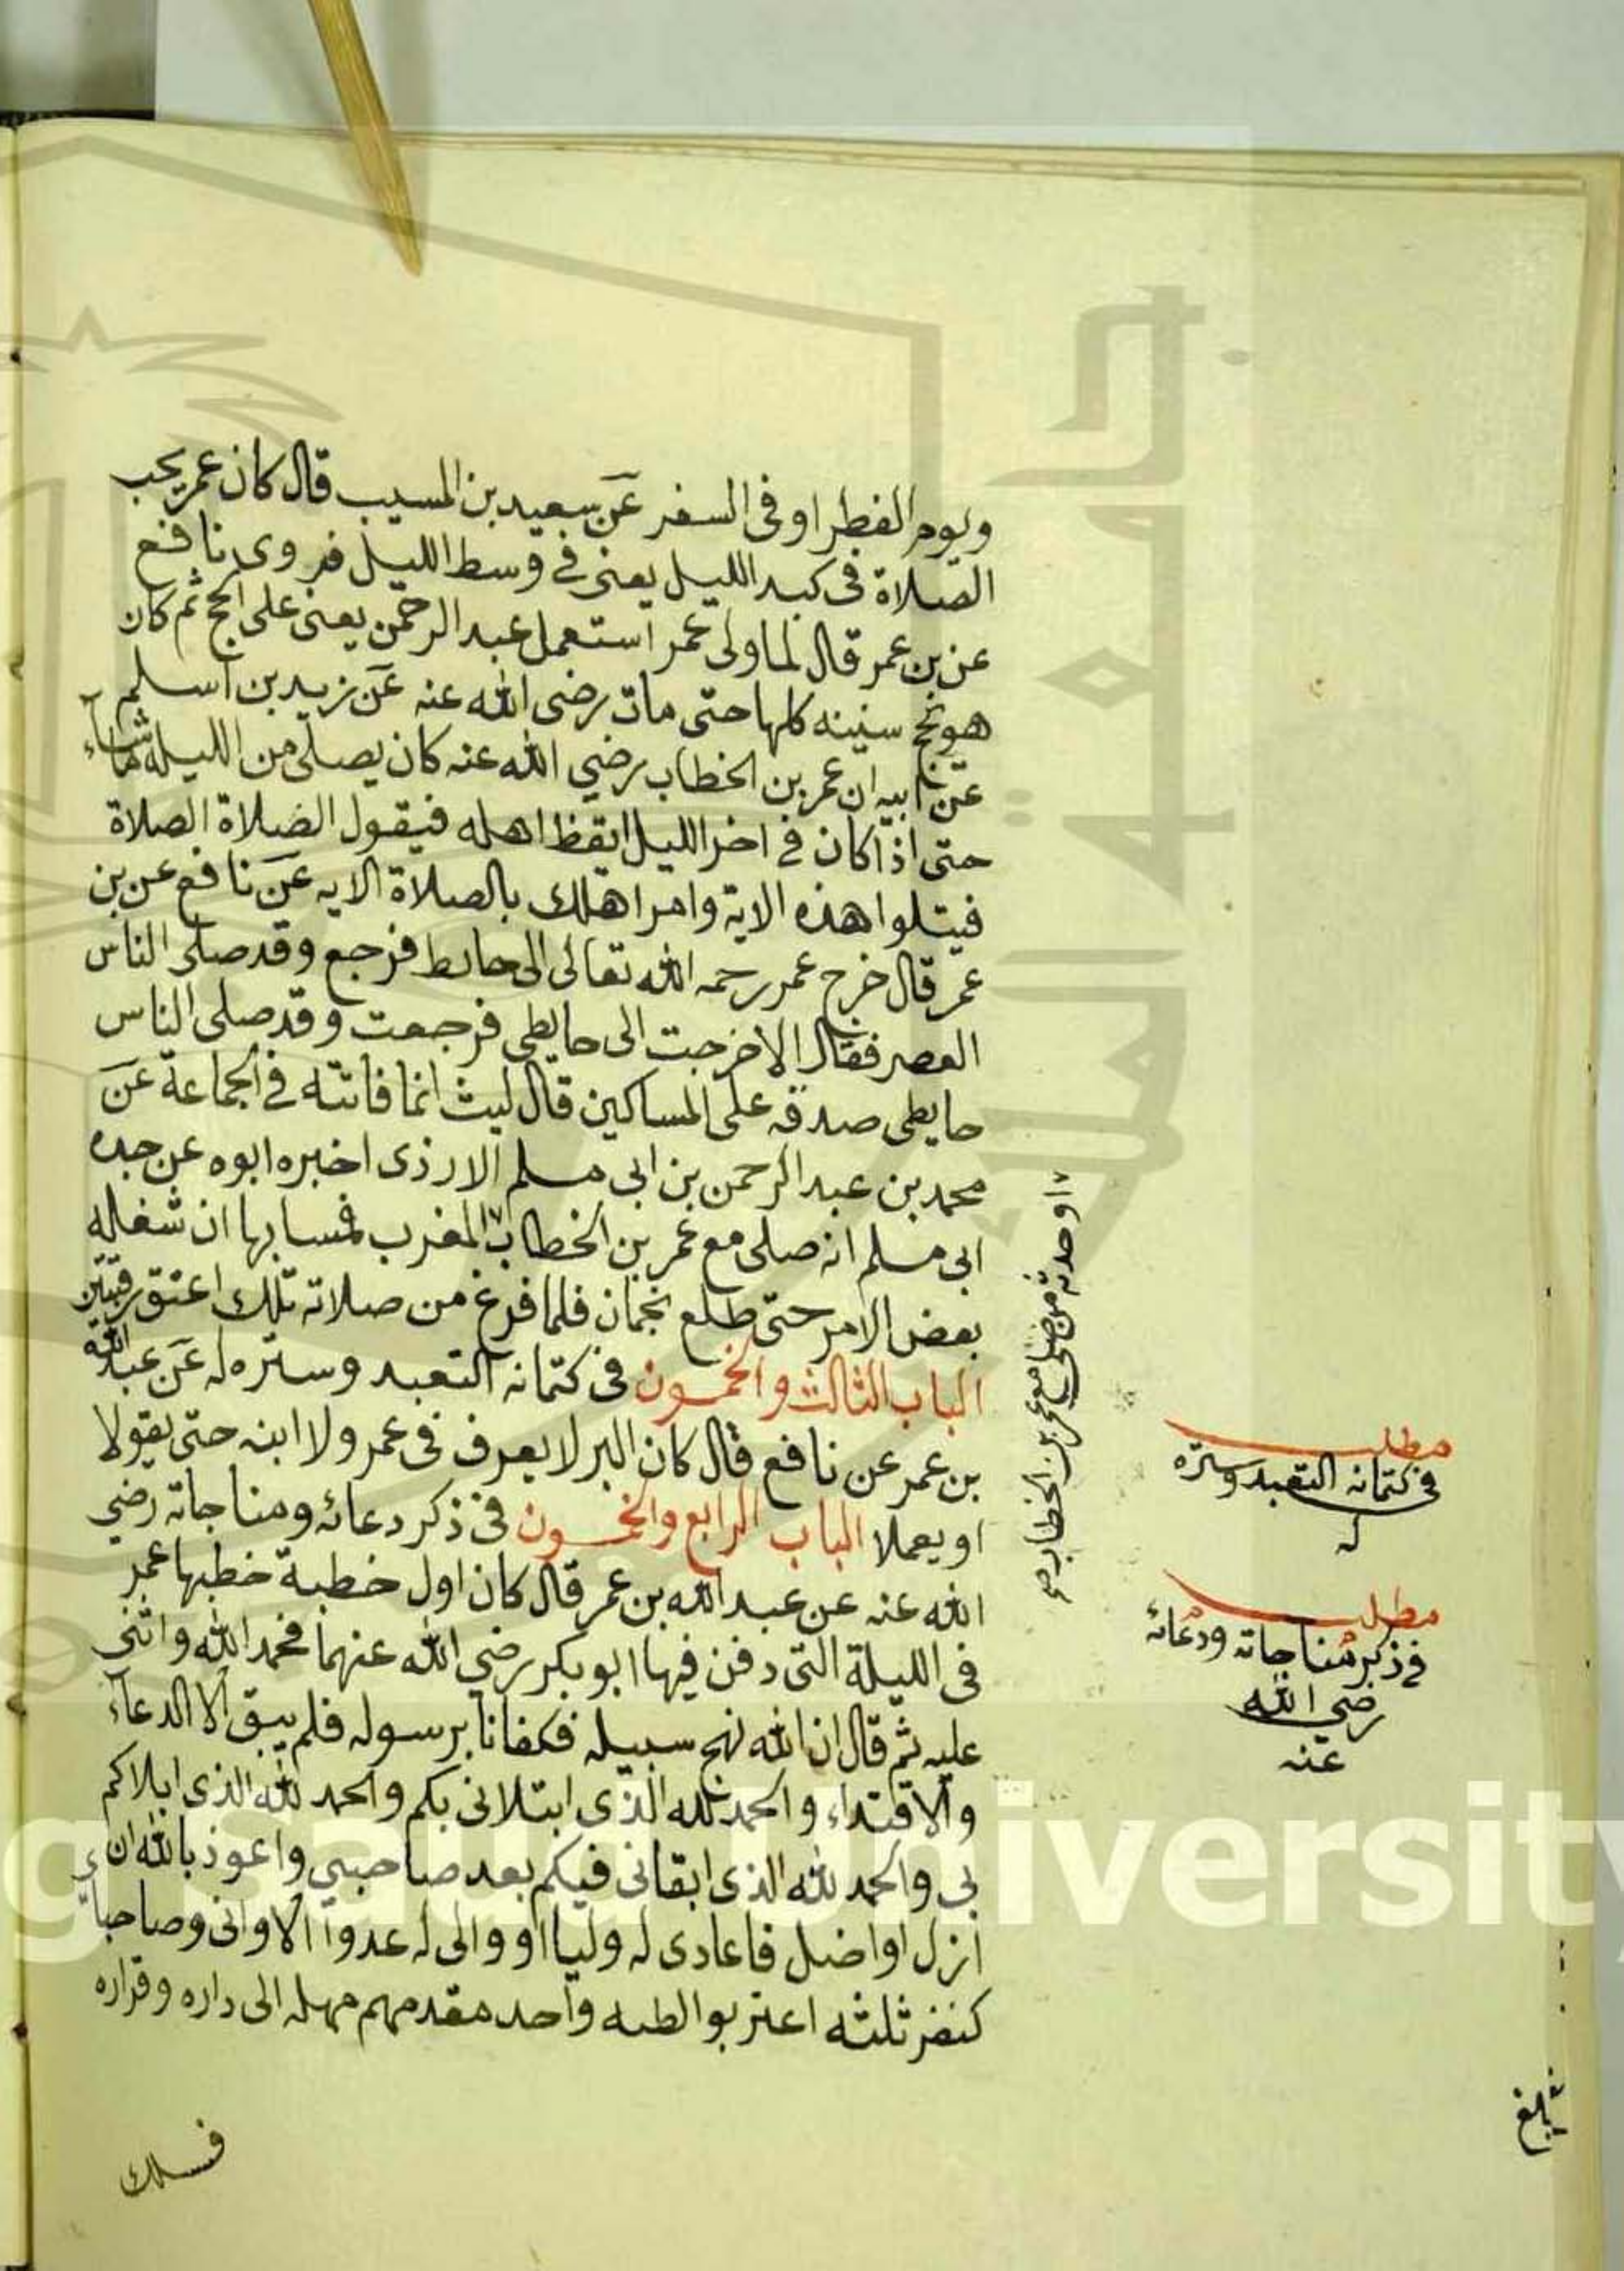 ويوم الفطر او في السفر عن سعيد بن المسيب قال كان عمر يحب
الصلاة في كبد الليل يعنى في وسط الليل فروى نافع
عن بن عمر قال لما ولى عمر استعمل عبد الرحمن يعنى على الحج ثم كان
هو يحج سنينه كلها حتى مات رضى الله عنه عن زيد بن اسلم
عن ابيه ان عمر بن الخطاب رضي الله عنه كان يصلى من الليله ما شاء
حتى اذا كان في اخر الليل ايقظ اهله فيقول الصلاة الصلاة
فيتلوا هذه الاية وامر اهلك بالصلاة الايه عن نافع عن بن
عمر قال خرج عمر رحمه الله تعالى الى حائط فرجع وقد صلى الناس
العصر فقال الاخرجت الى حايطى فرجعت وقد صلى الناس
حايطى صدقه على المساكين قال ليث انما فاتته في الجماعة عن
محمد بن عبد الرحمن بن ابي مسلم الازدى اخبره ابوه عن جده
ابى مسلم انه صلى مع عمر بن الخطاب المغرب فمسا بها ان شغله
بعض الامر حتى طلع نجمان فلما فرغ من صلاته تلك اعتق رقبتين
الباب الثالث والخمسون في كتمانه التعبد وستره له عن عبد الله
بن عمر عن نافع قال كان البر لا يعرف في عمر ولا ابنه حتى يقولا
او يعملا الباب الرابع والخمسون في ذكر دعائه ومناجاته رضي
الله عنه عن عبد الله بن عمر قال كان اول خطبة خطبها عمر
في الليلة التى دفن فيها ابو بكر رضي الله عنهما فحمد الله واثنى
عليه ثم قال ان الله نهج سبيله فكفانا برسوله فلم يبق الا الدعاء
والاقتداء والحمد لله الذى ابتلانى بكم والحمد لله الذى ابلاكم
بى والحمد لله الذى ابقانى فيكم بعد صاحبي واعوذ بالله ان
ازل او اضل فاعادى له وليا او والى له عدوا الا وانى وصاحباي
كنفر ثلثه اعتربوا الطيه واحد مقدمهم مهله الى داره وقراره
فسلك
او حدثه من صلى مع عمر بن الخطاب
مطلب
في كتمانه التعبد وستره
له
مطلب
في ذكر مناجاته ودعائه
رضي الله
عنه
بلغ
جامعة الملك
g Saud University